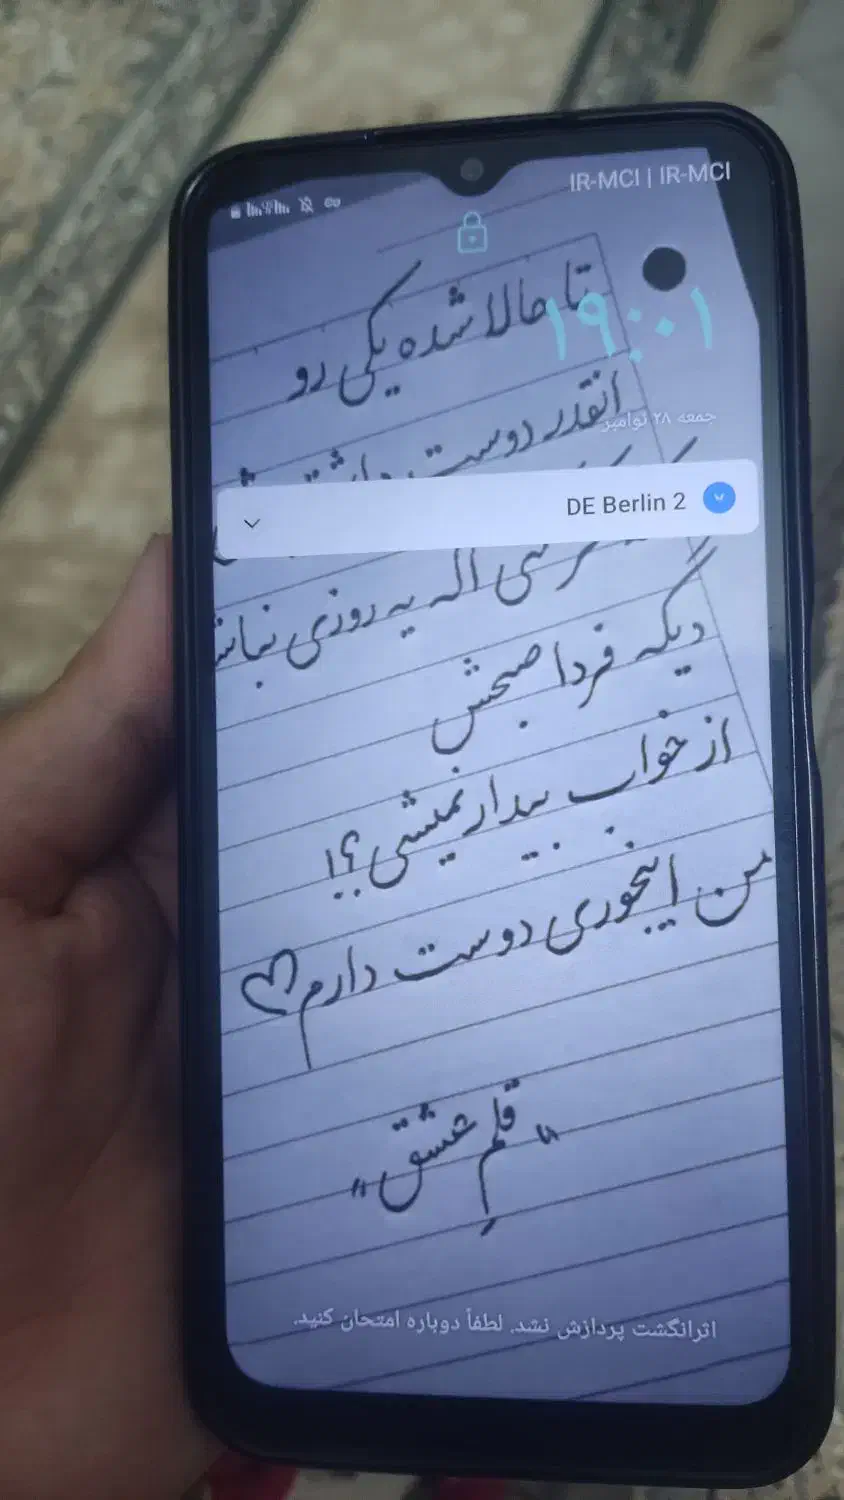 IR-MCI | IR-MCI
۱۹:۰۱
جمعه ۲۸ نوامبر
تا حالا شده یکی رو
انقدر دوست
DE Berlin 2
اگه یه روزی
دیگه فردا صبحش
از خواب بیدار نمیشی؟!
من اینجوری دوست دارم♡
"قلمِ عشق"
اثرانگشت پردازش نشد. لطفاً دوباره امتحان کنید.